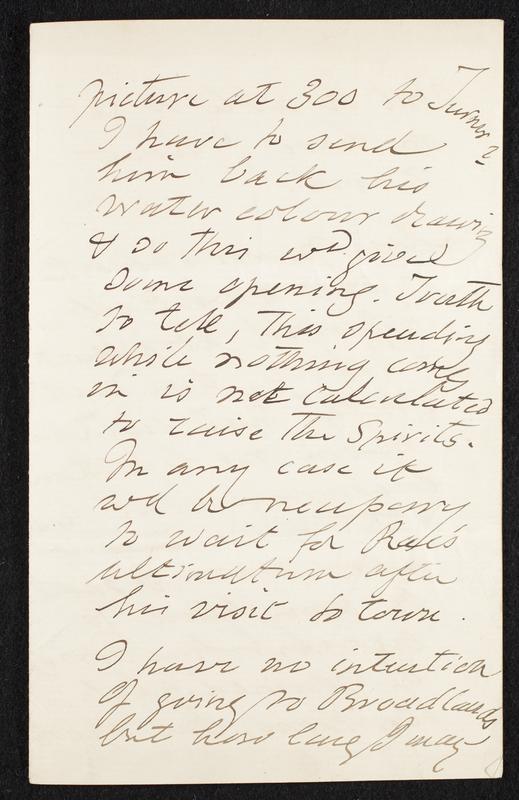 picture at 300 to Turner?
I have to send
him back his
water colour drawing
& so this wd give
some opening. Truth
to tell, this spending
while nothing comes
in is not calculated
to raise the spirits.
In any case it
wd be necessary
to wait for Rae's
ultimatum after
his visit to town.
I have no intention
of going to Broadlands
but how long I may